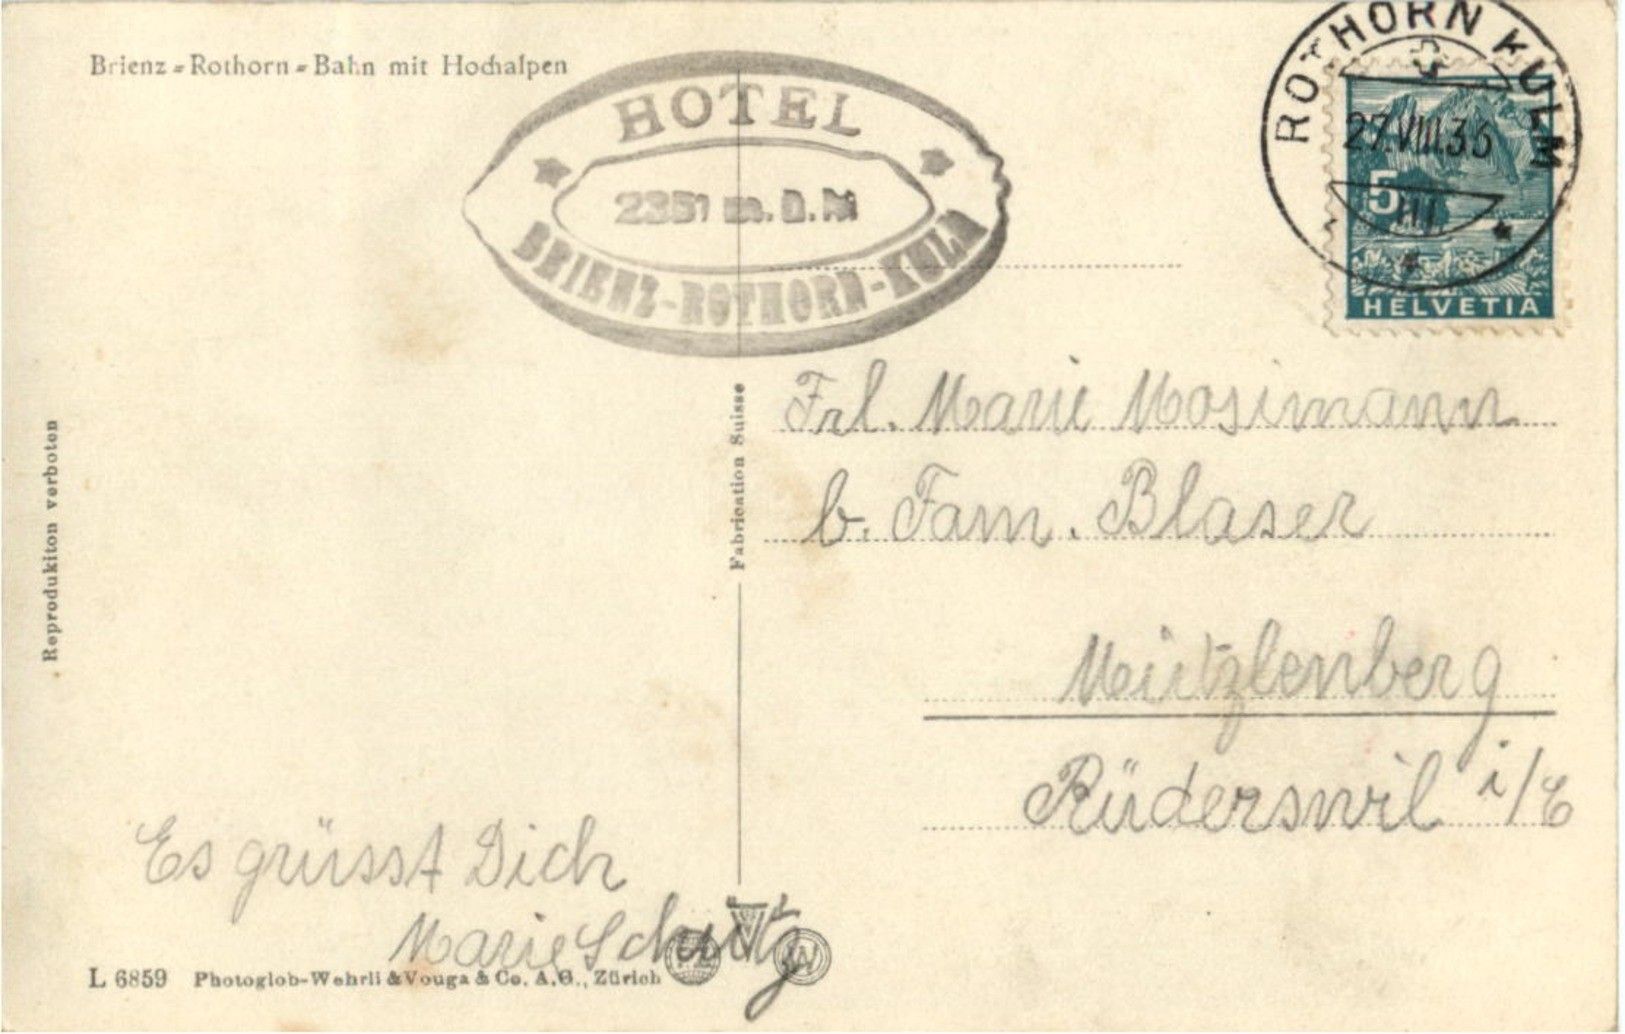 Brienz-Rothorn-Bahn mit Hochalpen
HOTEL
2351 m.ü.M
BRIENZ-ROTHORN-KULM
ROTHORN KULM
27.VIII.35
5
HELVETIA
Reprodukiton verboten
Fabrication Suisse
Frl. Marie Mosimann
b. Fam. Blaser
Mützlenberg
Rüderswil i/E
Es grüsst Dich
Marie Schütz
L 6859 Photoglob-Wehrli & Vouga & Co. A.G., Zürich